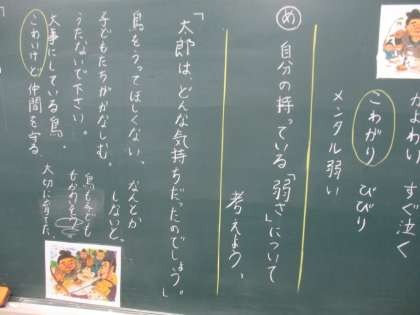 かよわい すぐ泣く
こわがり びびり
メンタル弱い
め 自分の持っている「弱さ」について
考えよう。
「太郎は、どんな気持ちだったのでしょう。」
鳥をうってほしくない。
なんとか
しないと。
子どもたちがかなしむ。
うたないで下さい。
鳥も子ども
もかわいそう
大事にしている鳥。
大切に育てた。
こわいけど仲間を守る。